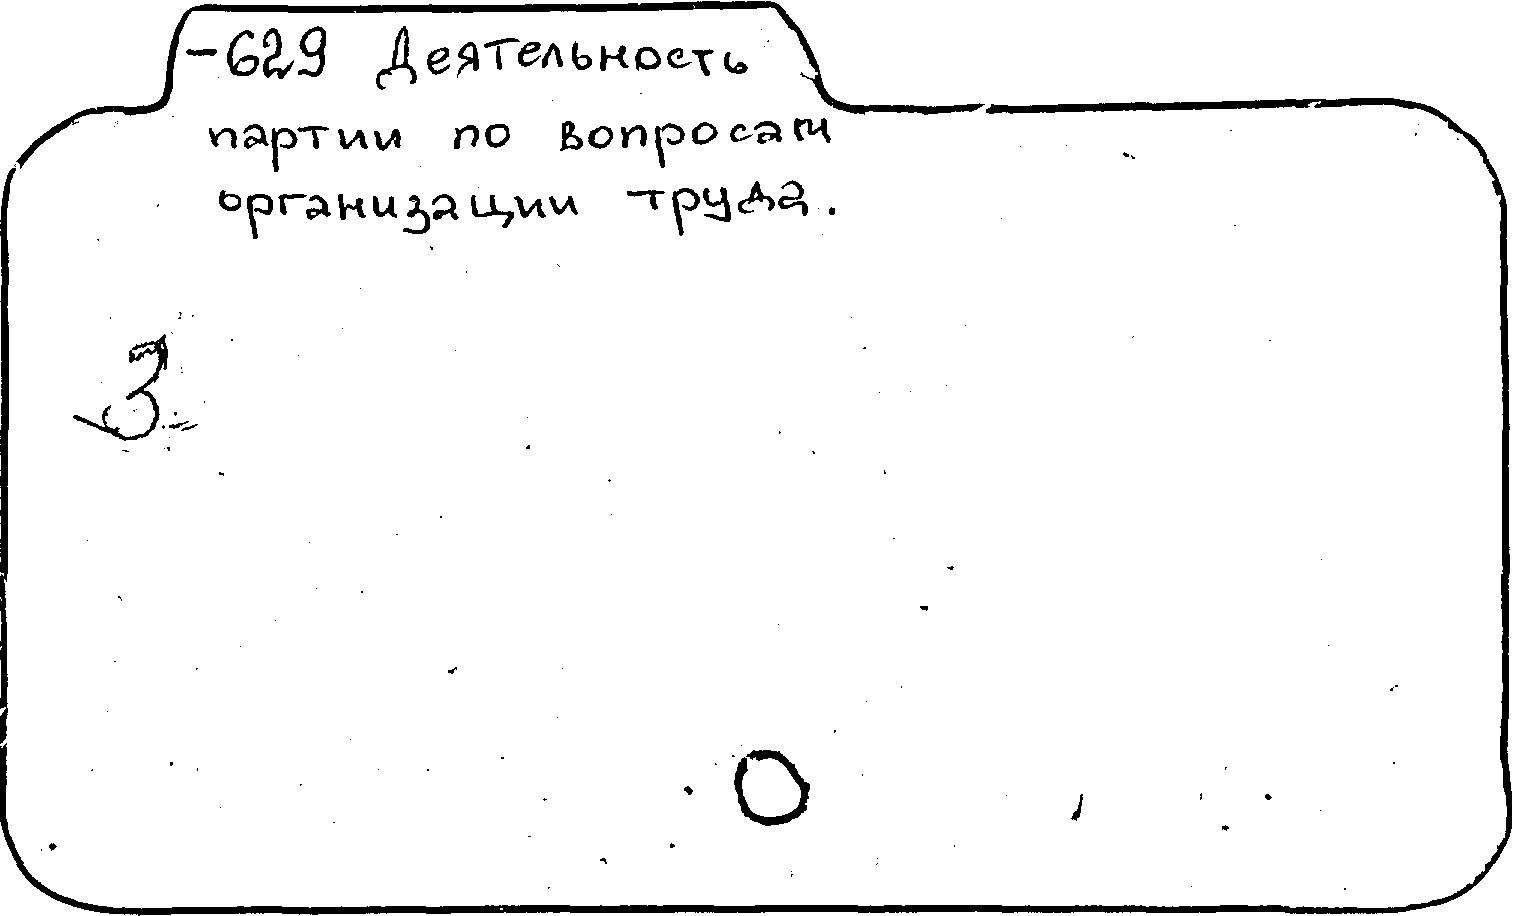 -629 Деятельность
партии по вопросам
организации труда.
3